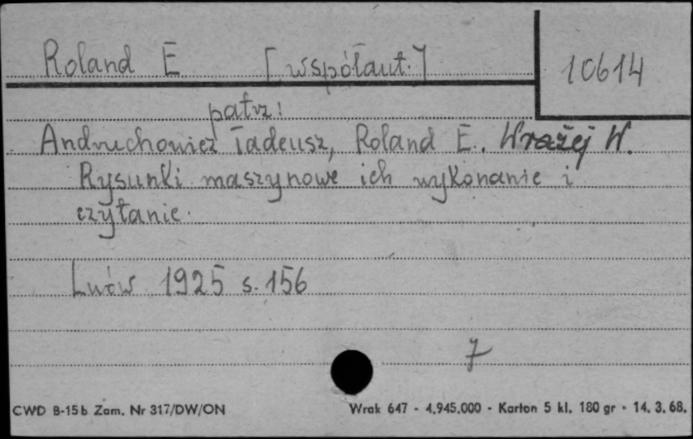 Roland E [współaut.] 10614
patrz!
Andruchowicz Tadeusz, Roland E., Wrażej W.
Rysunki maszynowe ich wykonanie i
czytanie.
Lwów 1925 s. 156
7
CWD B-15b Zam. Nr 317/DW/ON Wrak 647 - 4.945.000 - Karton 5 kl. 180 gr - 14. 3. 68.